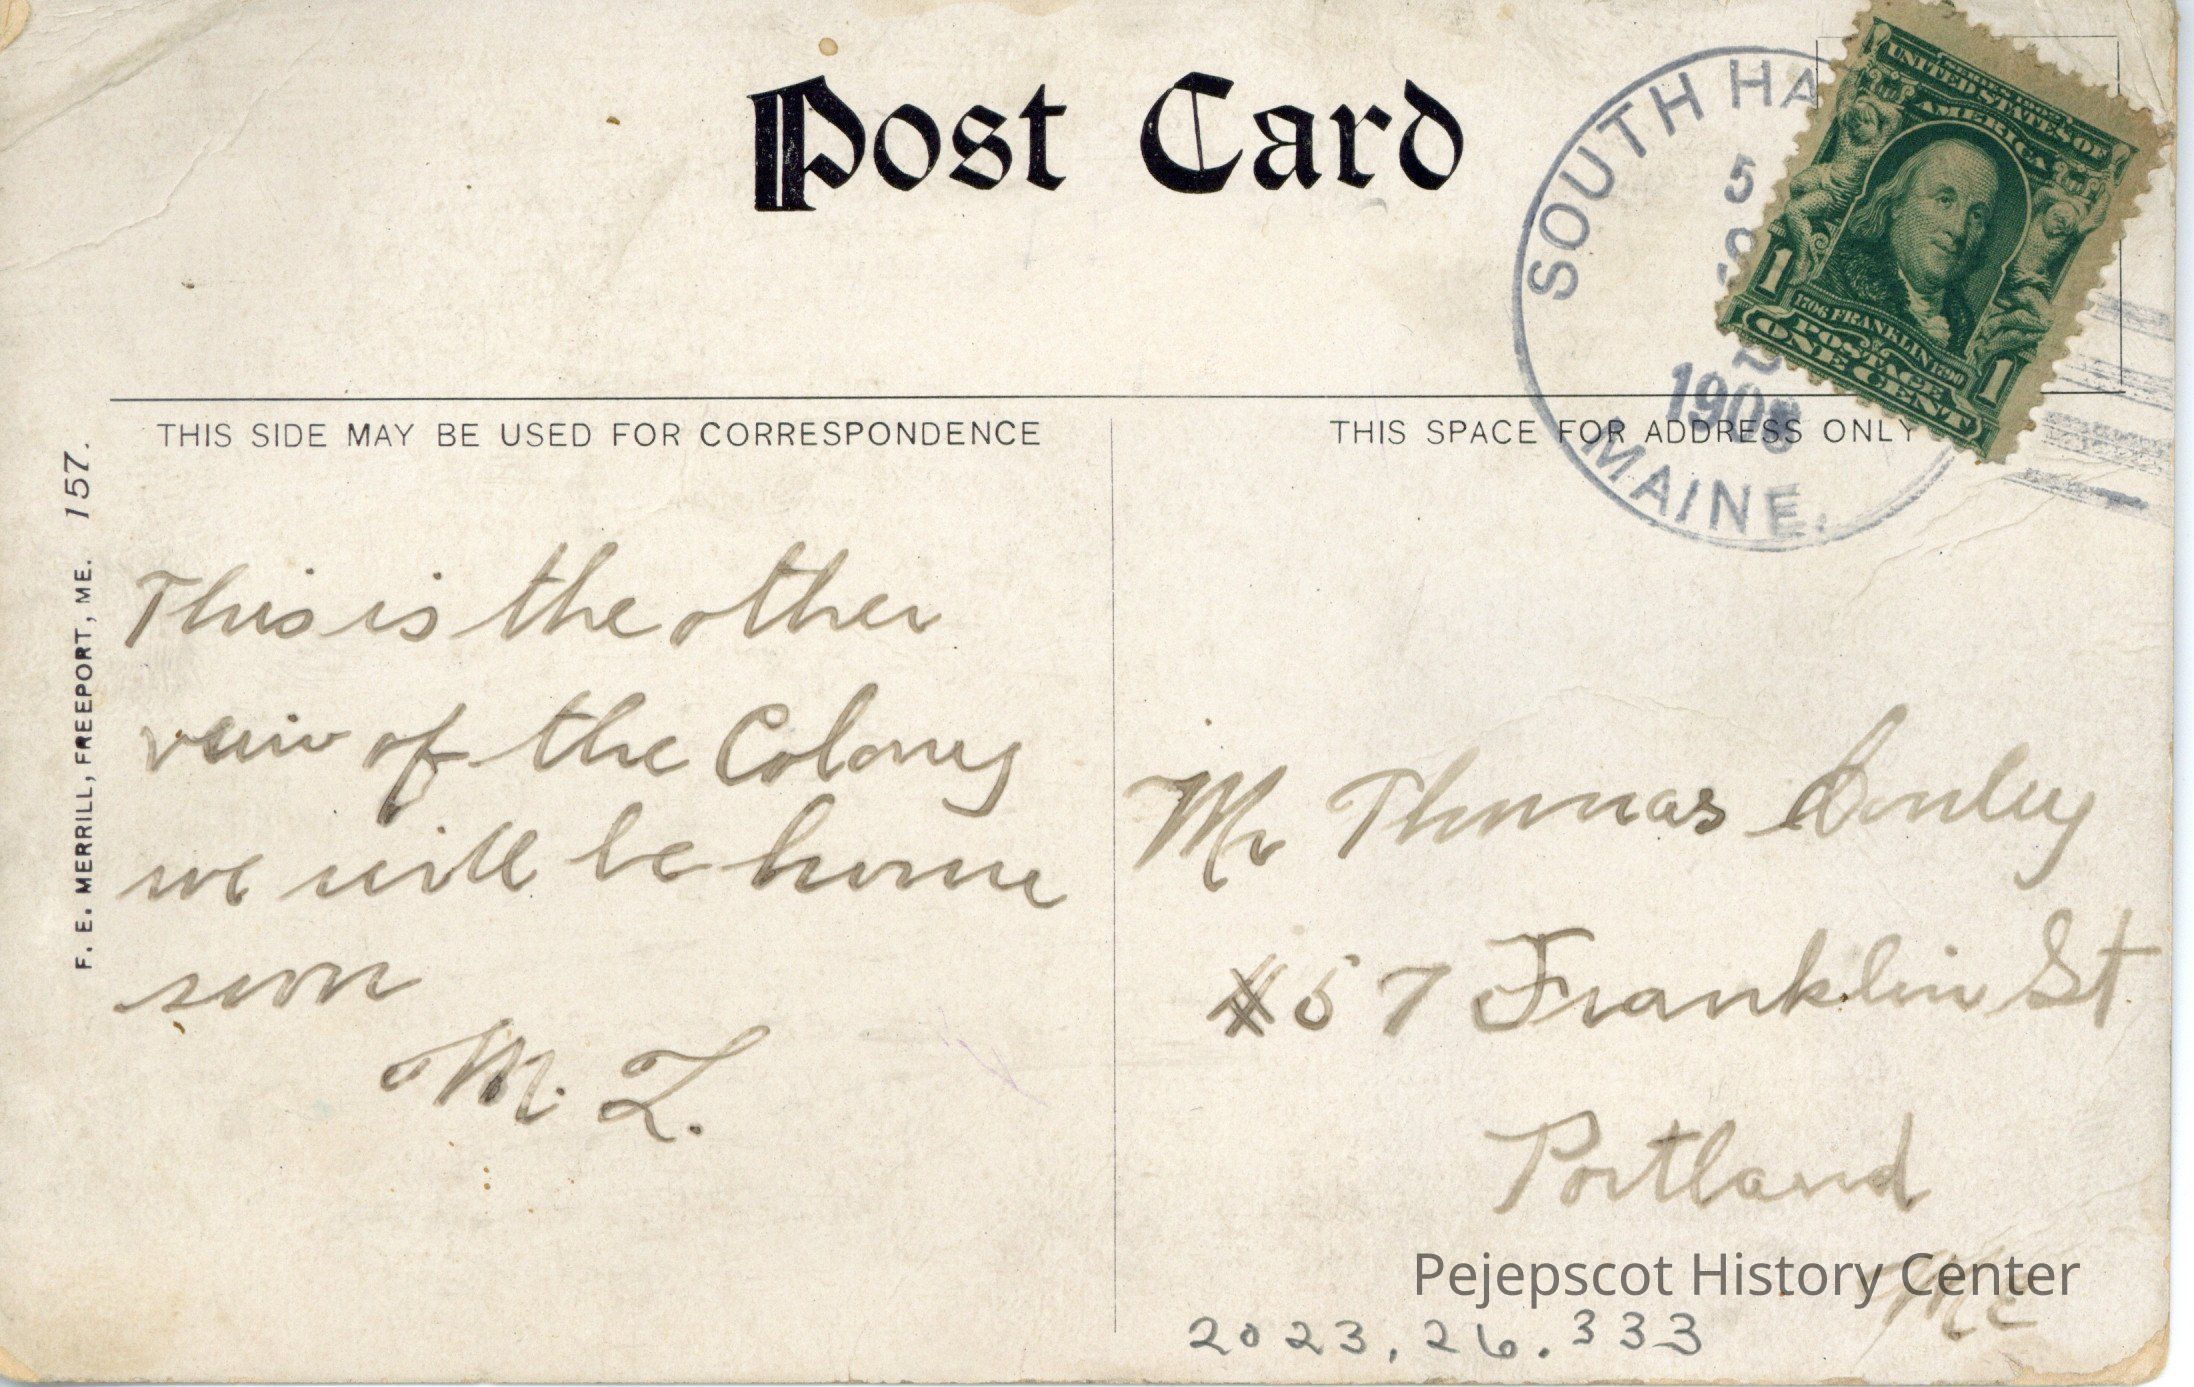 Post Card
SOUTH HA
5
190
MAINE.
UNITED STATES OF
AMERICA
1706 FRANKLIN 1790
POSTAGE
1 ONE CENT 1
THIS SIDE MAY BE USED FOR CORRESPONDENCE
THIS SPACE FOR ADDRESS ONLY
F. E. MERRILL, FREEPORT, ME. 157.
This is the other
veiw of the Colony
we will be home
soon
M. L.
Mr Thomas Conley
#57 Franklin St
Portland
Me
Pejepscot History Center
2023.26.333